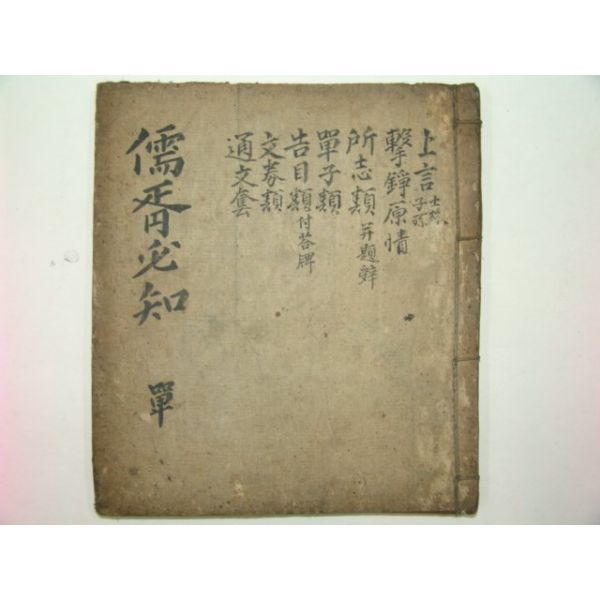 上言
擊錚原情
所志類 并題辭
單子類
告目類 付答牌
文券類
通文套
儒胥必知
單